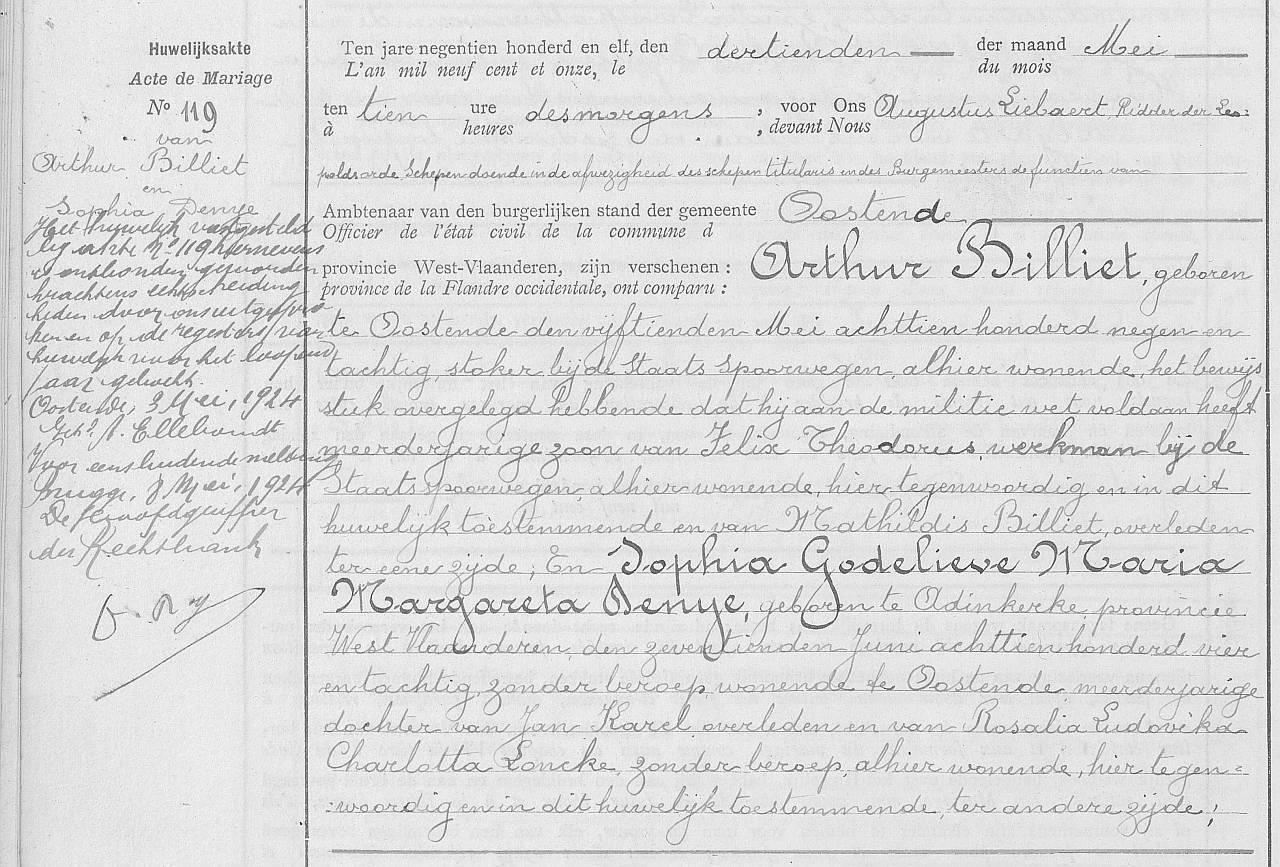 Huwelijksakte
Acte de Mariage
Nº 119
van
Arthur Billiet
en
Sophia Denye
Het huwelijk vastgesteld
bij akte nº 119 hiernevens
is ontbonden geworden
krachtens echtscheiding
heden door ons uitgespro
ken en op de registers van
huwelijk voor het loopend
jaar geboekt.
Oostende, 3 Mei, 1924
Get? Elleboudt
Voor eensluidende melding
Brugge, 8 Mei, 1924
De Hoofdgriffier
der Rechtbank
Ten jare negentien honderd en elf, den dertienden der maand Mei
L'an mil neuf cent et onze, le du mois
ten tien ure des morgens, voor Ons Augustus Liebaert, Ridder der Leo=
à heures , devant Nous
poldsorde, Schepen doende in de afwezigheid des schepen titularis en des Burgemeesters de functien van
Ambtenaar van den burgerlijken stand der gemeente Oostende
Officier de l'état civil de la commune d
provincie West-Vlaanderen, zijn verschenen : Arthur Billiet, geboren
province de la Flandre occidentale, ont comparu :
te Oostende den vijftienden Mei achttien honderd negen en
tachtig, stoker bij de Staats Spoorwegen, alhier wonende, het bewijs
stuk overgelegd hebbende dat hij aan de militie wet voldaan heeft
meerderjarige zoon van Felix Theodorus, werkman bij de
Staatsspoorwegen, alhier wonende, hier tegenwoordig en in dit
huwelijk toestemmende en van Mathildis Billiet, overleden
ter eene zijde; En Sophia Godelieve Maria
Margareta Denye, geboren te Adinkerke provincie
West Vlaanderen, den zeventienden Juni achttien honderd vier
en tachtig, zonder beroep, wonende te Oostende, meerderjarige
dochter van Jan Karel overleden en van Rosalia Ludovika
Charlotta Loncke, zonder beroep, alhier wonende, hier tegen=
=woordig en in dit huwelijk toestemmende, ter andere zijde;